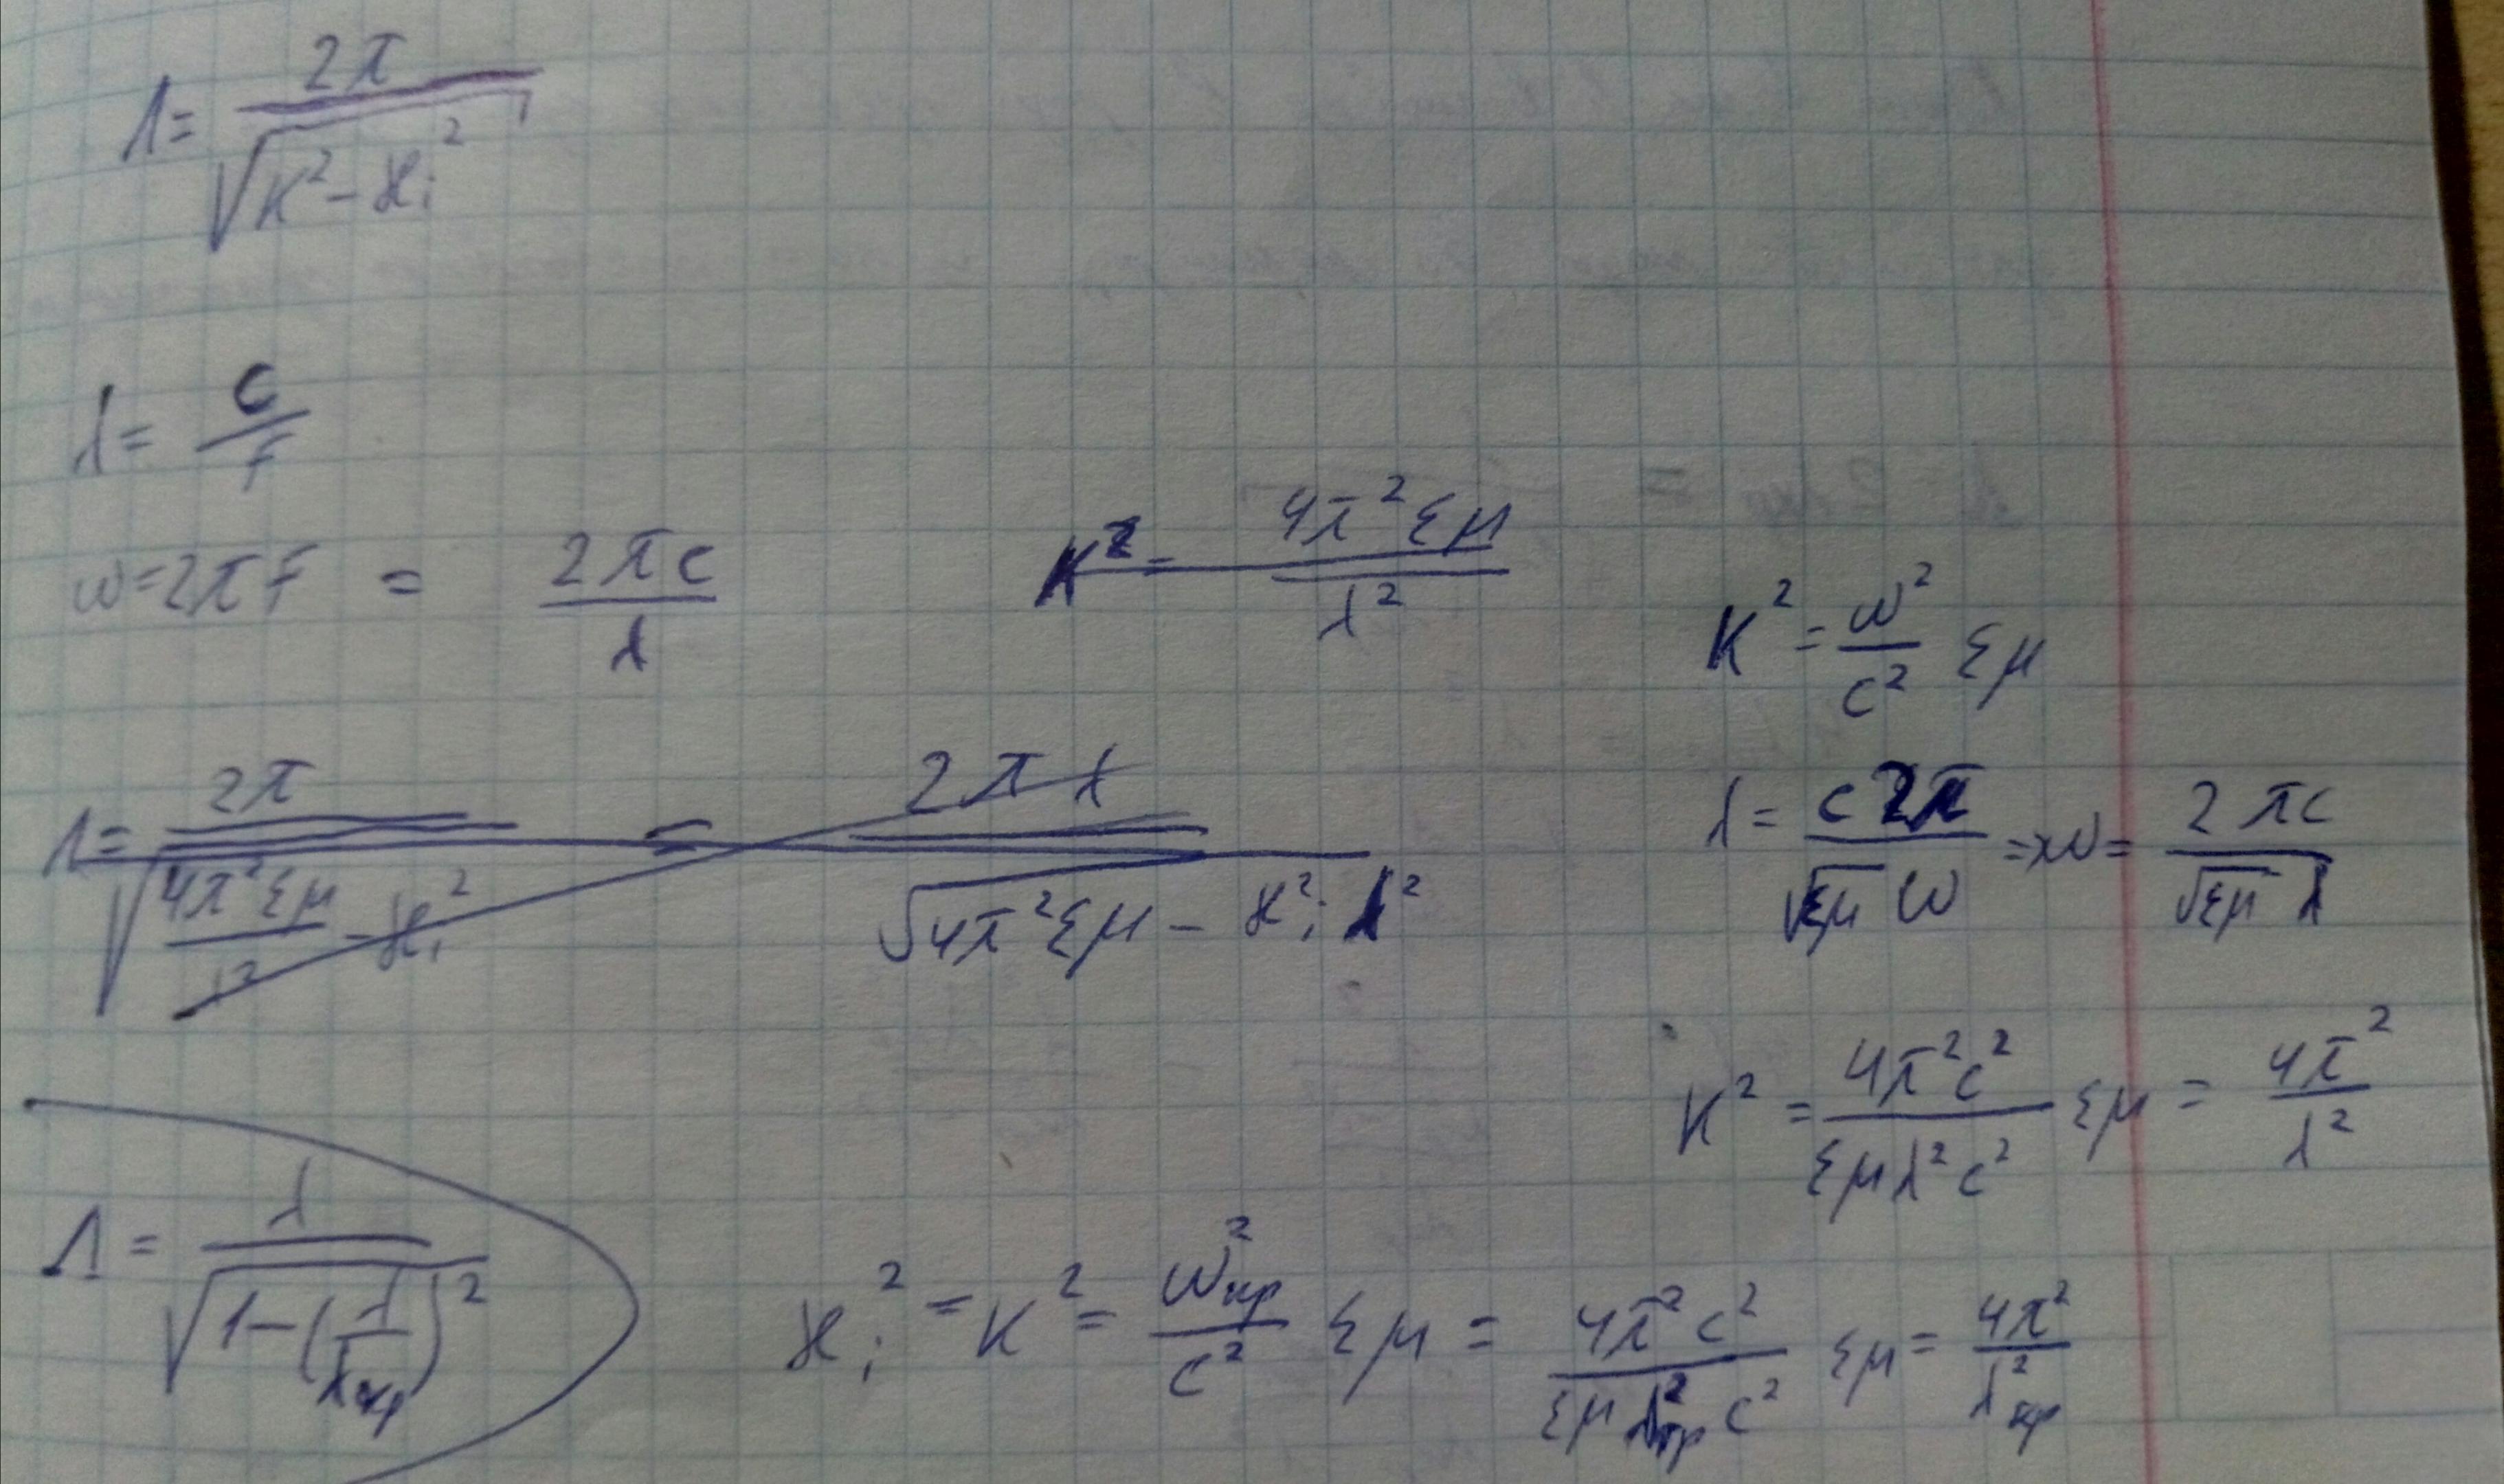 Λ = 2π / √(K² − ϰᵢ²)
λ = c / f
ω = 2πf = 2πc / λ
K² = 4π²εμ / λ²
K² = ω² / c² εμ
Λ = 2π / √(4π²εμ / λ² − ϰᵢ²) = 2πλ / √(4π²εμ − ϰ²ᵢ λ²)
λ = c2π / √εμ ω => ω = 2πc / √εμ λ
K² = 4π²c² / εμλ²c² εμ = 4π² / λ²
Λ = λ / √(1 − (λ / λкр)²)
ϰᵢ² = K² = ω²кр / c² εμ = 4π²c² / εμ λ²кр c² εμ = 4π² / λ²кр